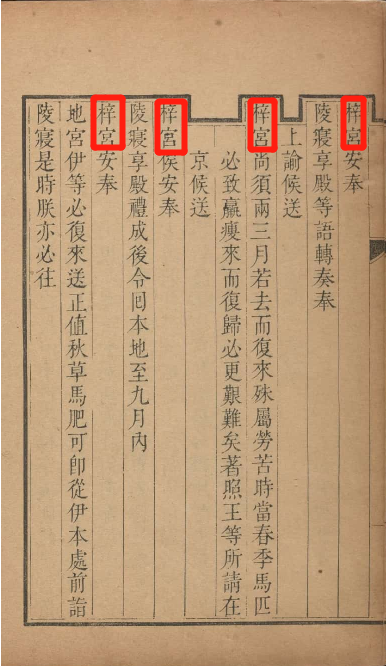 梓宮安奉
陵寢享殿等語轉奏奉
上諭候送
梓宮尚須兩三月若去而復來殊屬勞苦時當春季馬匹
必致羸瘦來而復歸必更艱難矣著照王等所請在
京候送
梓宮俟安奉
陵寢享殿禮成後令囘本地至九月內
梓宮安奉
地宮伊等必復來送正値秋草馬肥可卽從伊本處前詣
陵寢是時朕亦必往